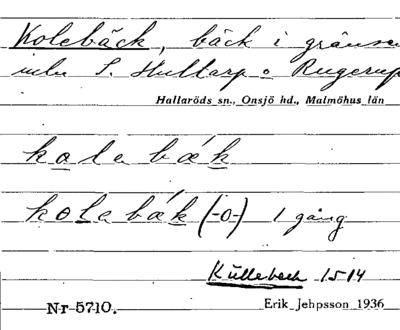 Kolebäck, bäck i gränsen
mln S. Hultarp o Rugerup
Hallaröds sn., Onsjö hd., Malmöhus län
kolebæk
kolebǽk (-o-) 1 gång
Küllebech 1514
Nr 5710. Erik Jehpsson 1936